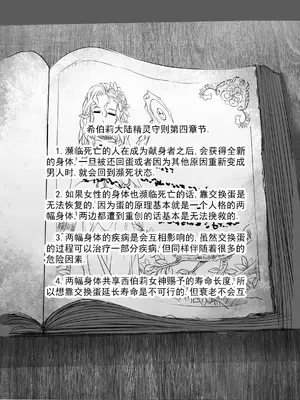 希伯莉大陆精灵守则第四章节.
1. 濒临死亡的人在成为献身者之后, 会获得全新
的身体. 一旦被还回蛋或者因为其他原因重新变成
男人时. 就会回到濒死状态.
2. 如果女性的身体也濒临死亡的话, 靠交换蛋是
无法恢复的. 因为蛋的原理基本就是一个人格的两
幅身体. 两边都遭到重创的话基本是无法挽救的.
3. 两幅身体的疾病是会互相影响的, 虽然交换蛋
的过程可以治疗一部分疾病, 但同样伴随着很多的
危险因素.
4. 两幅身体共享西伯莉女神赐予的寿命长度, 所
以想靠交换蛋延长寿命是不可行的. 但衰老不会互